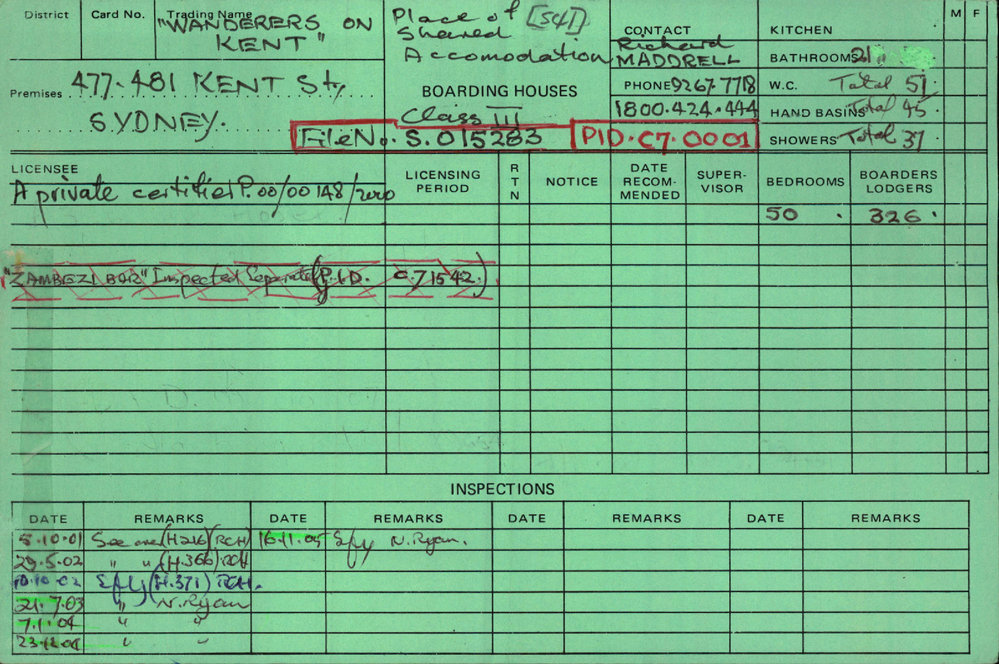 District
Card No.
Trading Name
"WANDERERS ON
KENT"
Premises
477-481 KENT St,
SYDNEY.
Place of [541]
Shared
Accomodation
BOARDING HOUSES
Class III
File No. S.015283
PID.C7.0001
CONTACT
Richard
MADDRELL
PHONE 9267 7718
1800.424.444
KITCHEN
BATHROOMS 21
W.C. Total 51
HAND BASINS Total 45
SHOWERS Total 37
M F
LICENSEE
LICENSING PERIOD
RTN
NOTICE
DATE RECOM-MENDED
SUPER-VISOR
BEDROOMS
BOARDERS LODGERS
A private certifier P.00/00148/2000
50 . 326.
"ZAMBEZI BAR" Inspected Separately (P.I.D. C.71542.)
INSPECTIONS
DATE REMARKS DATE REMARKS DATE REMARKS DATE REMARKS
5.10.01 See over (H216) (RCH) 16.11.05 Sfy N.Ryan.
29.5.02 " " (H.366) RCH
10.10.02 Sfy (H.371) RCH.
21.7.03 " N.Ryan
7.1.04 " "
23.12.04 " "